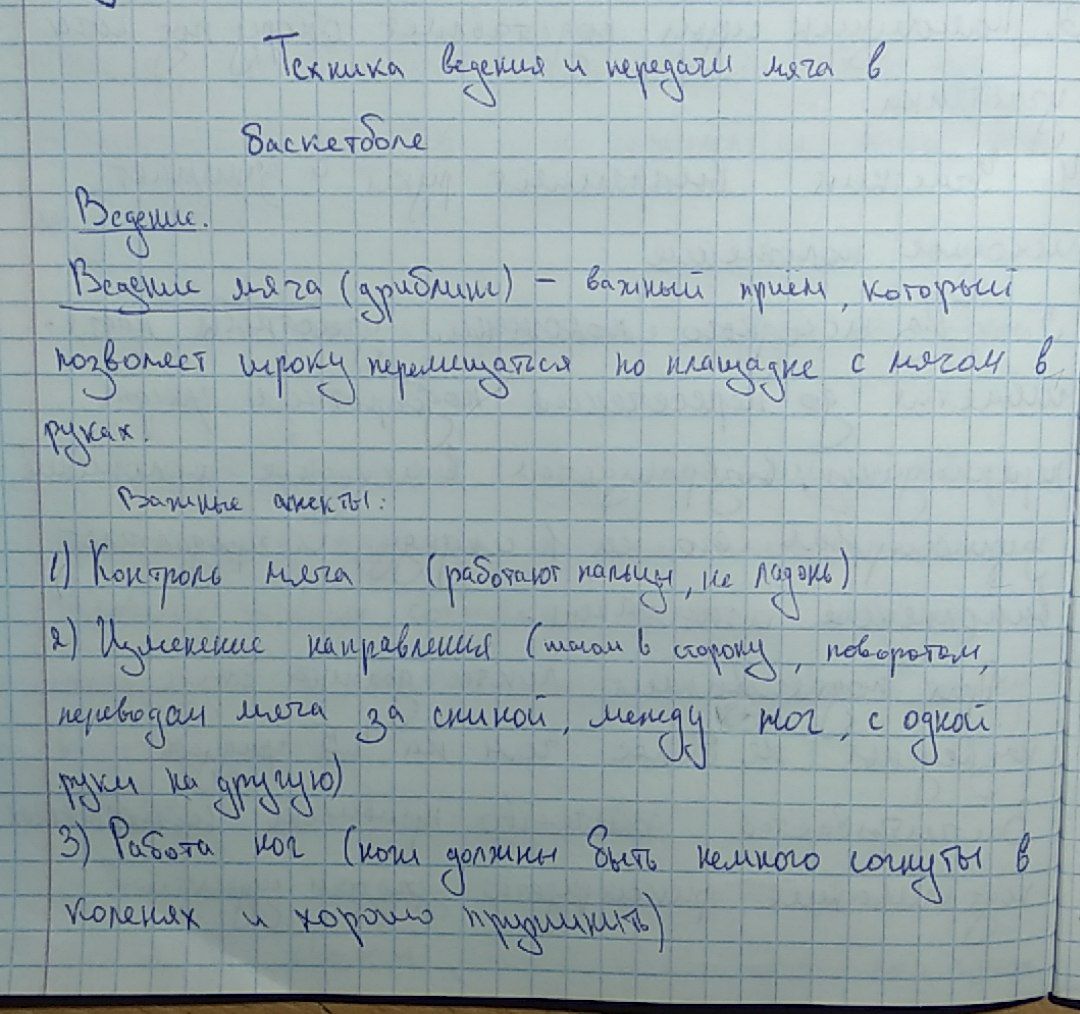 Техника ведения и передачи мяча в
баскетболе
Ведение.
Ведение мяча (дриблинг) – важный приём, который
позволяет игроку перемещаться по площадке с мячом в
руках.
Важные аспекты:
1) Контроль мяча (работают пальцы, не ладонь)
2) Изменение направления (шагом в сторону, поворотом,
переводом мяча за спиной, между ног, с одной
руки на другую)
3) Работа ног (ноги должны быть немного согнуты в
коленях и хорошо пружинить)